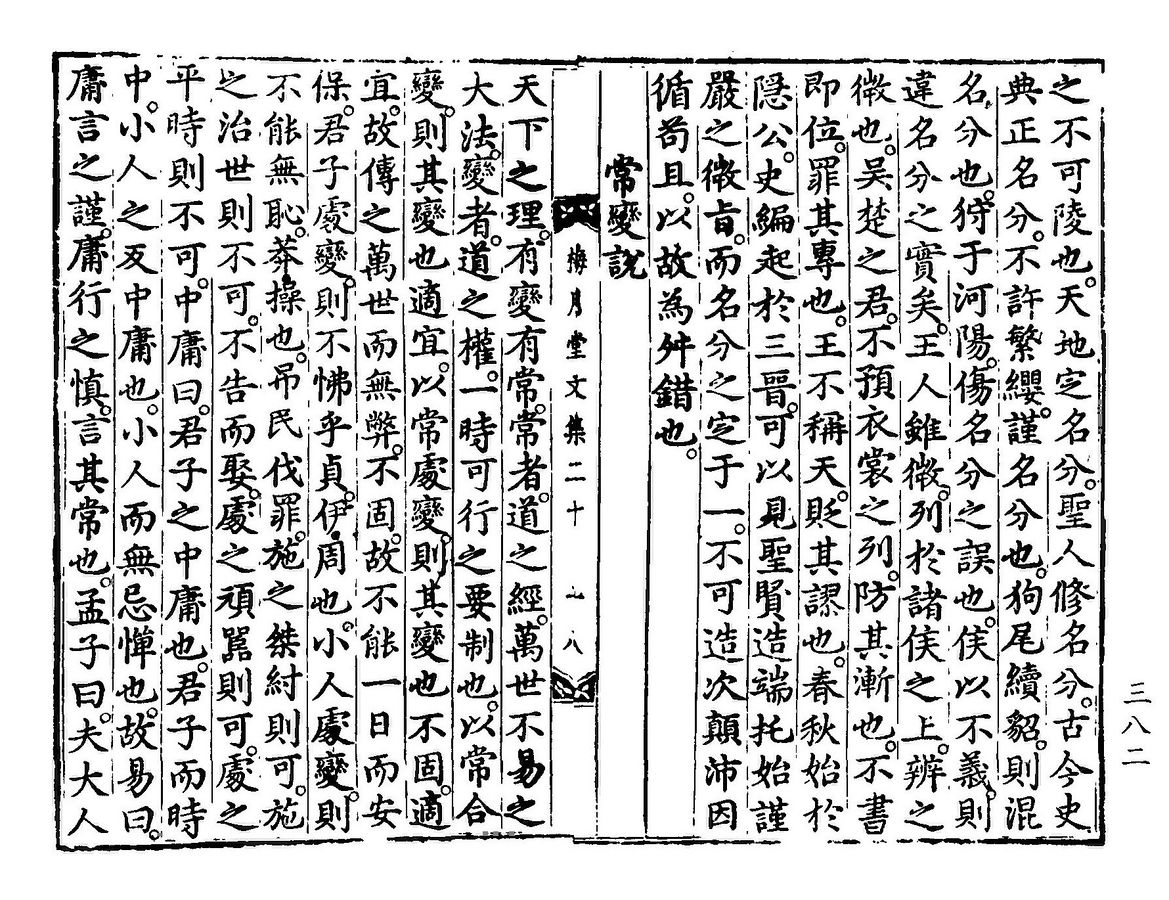 之不可陵也。天地定名分。聖人修名分。古今史
典正名分。不許繁纓。謹名分也。狗尾續貂。則混
名分也。狩于河陽。傷名分之誤也。侯以不義。則
違名分之實矣。王人雖微。列於諸侯之上。辨之
微也。吳楚之君。不預衣裳之列。防其漸也。不書
即位。罪其專也。王不稱天。貶其謬也。春秋始於
隱公。史編起於三晉。可以見聖賢造端托始謹
嚴之微旨。而名分之定于一。不可造次顛沛因
循苟且。以故為舛錯也。
常變說
梅月堂文集二十 八
天下之理。有變有常。常者道之經。萬世不易之
大法。變者。道之權。一時可行之要制也。以常合
變。則其變也適宜。以常處變。則其變也不固。適
宜。故傳之萬世而無弊。不固。故不能一日而安
保。君子處變。則不怫乎貞。伊周也。小人處變。則
不能無恥。莽操也。吊民伐罪。施之桀紂則可。施
之治世則不可。不告而娶。處之頑嚚則可。處之
平時則不可。中庸曰。君子之中庸也。君子而時
中。小人之反中庸也。小人而無忌憚也。故易曰。
庸言之謹。庸行之慎。言其常也。孟子曰。夫大人
三八二